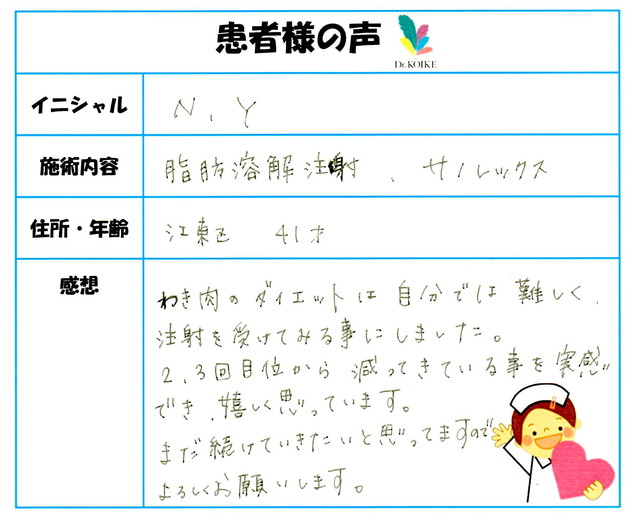 患者様の声
Dr.KOIKE
イニシャル N.Y
施術内容 脂肪溶解注射、サノレックス
住所・年齢 江東区 41才
感想
わき肉のダイエットは自分では難しく、
注射を受けてみる事にしました。
2、3回目位から減ってきている事を実感
でき、嬉しく思っています。
まだ続けていきたいと思ってますので
よろしくお願いします。